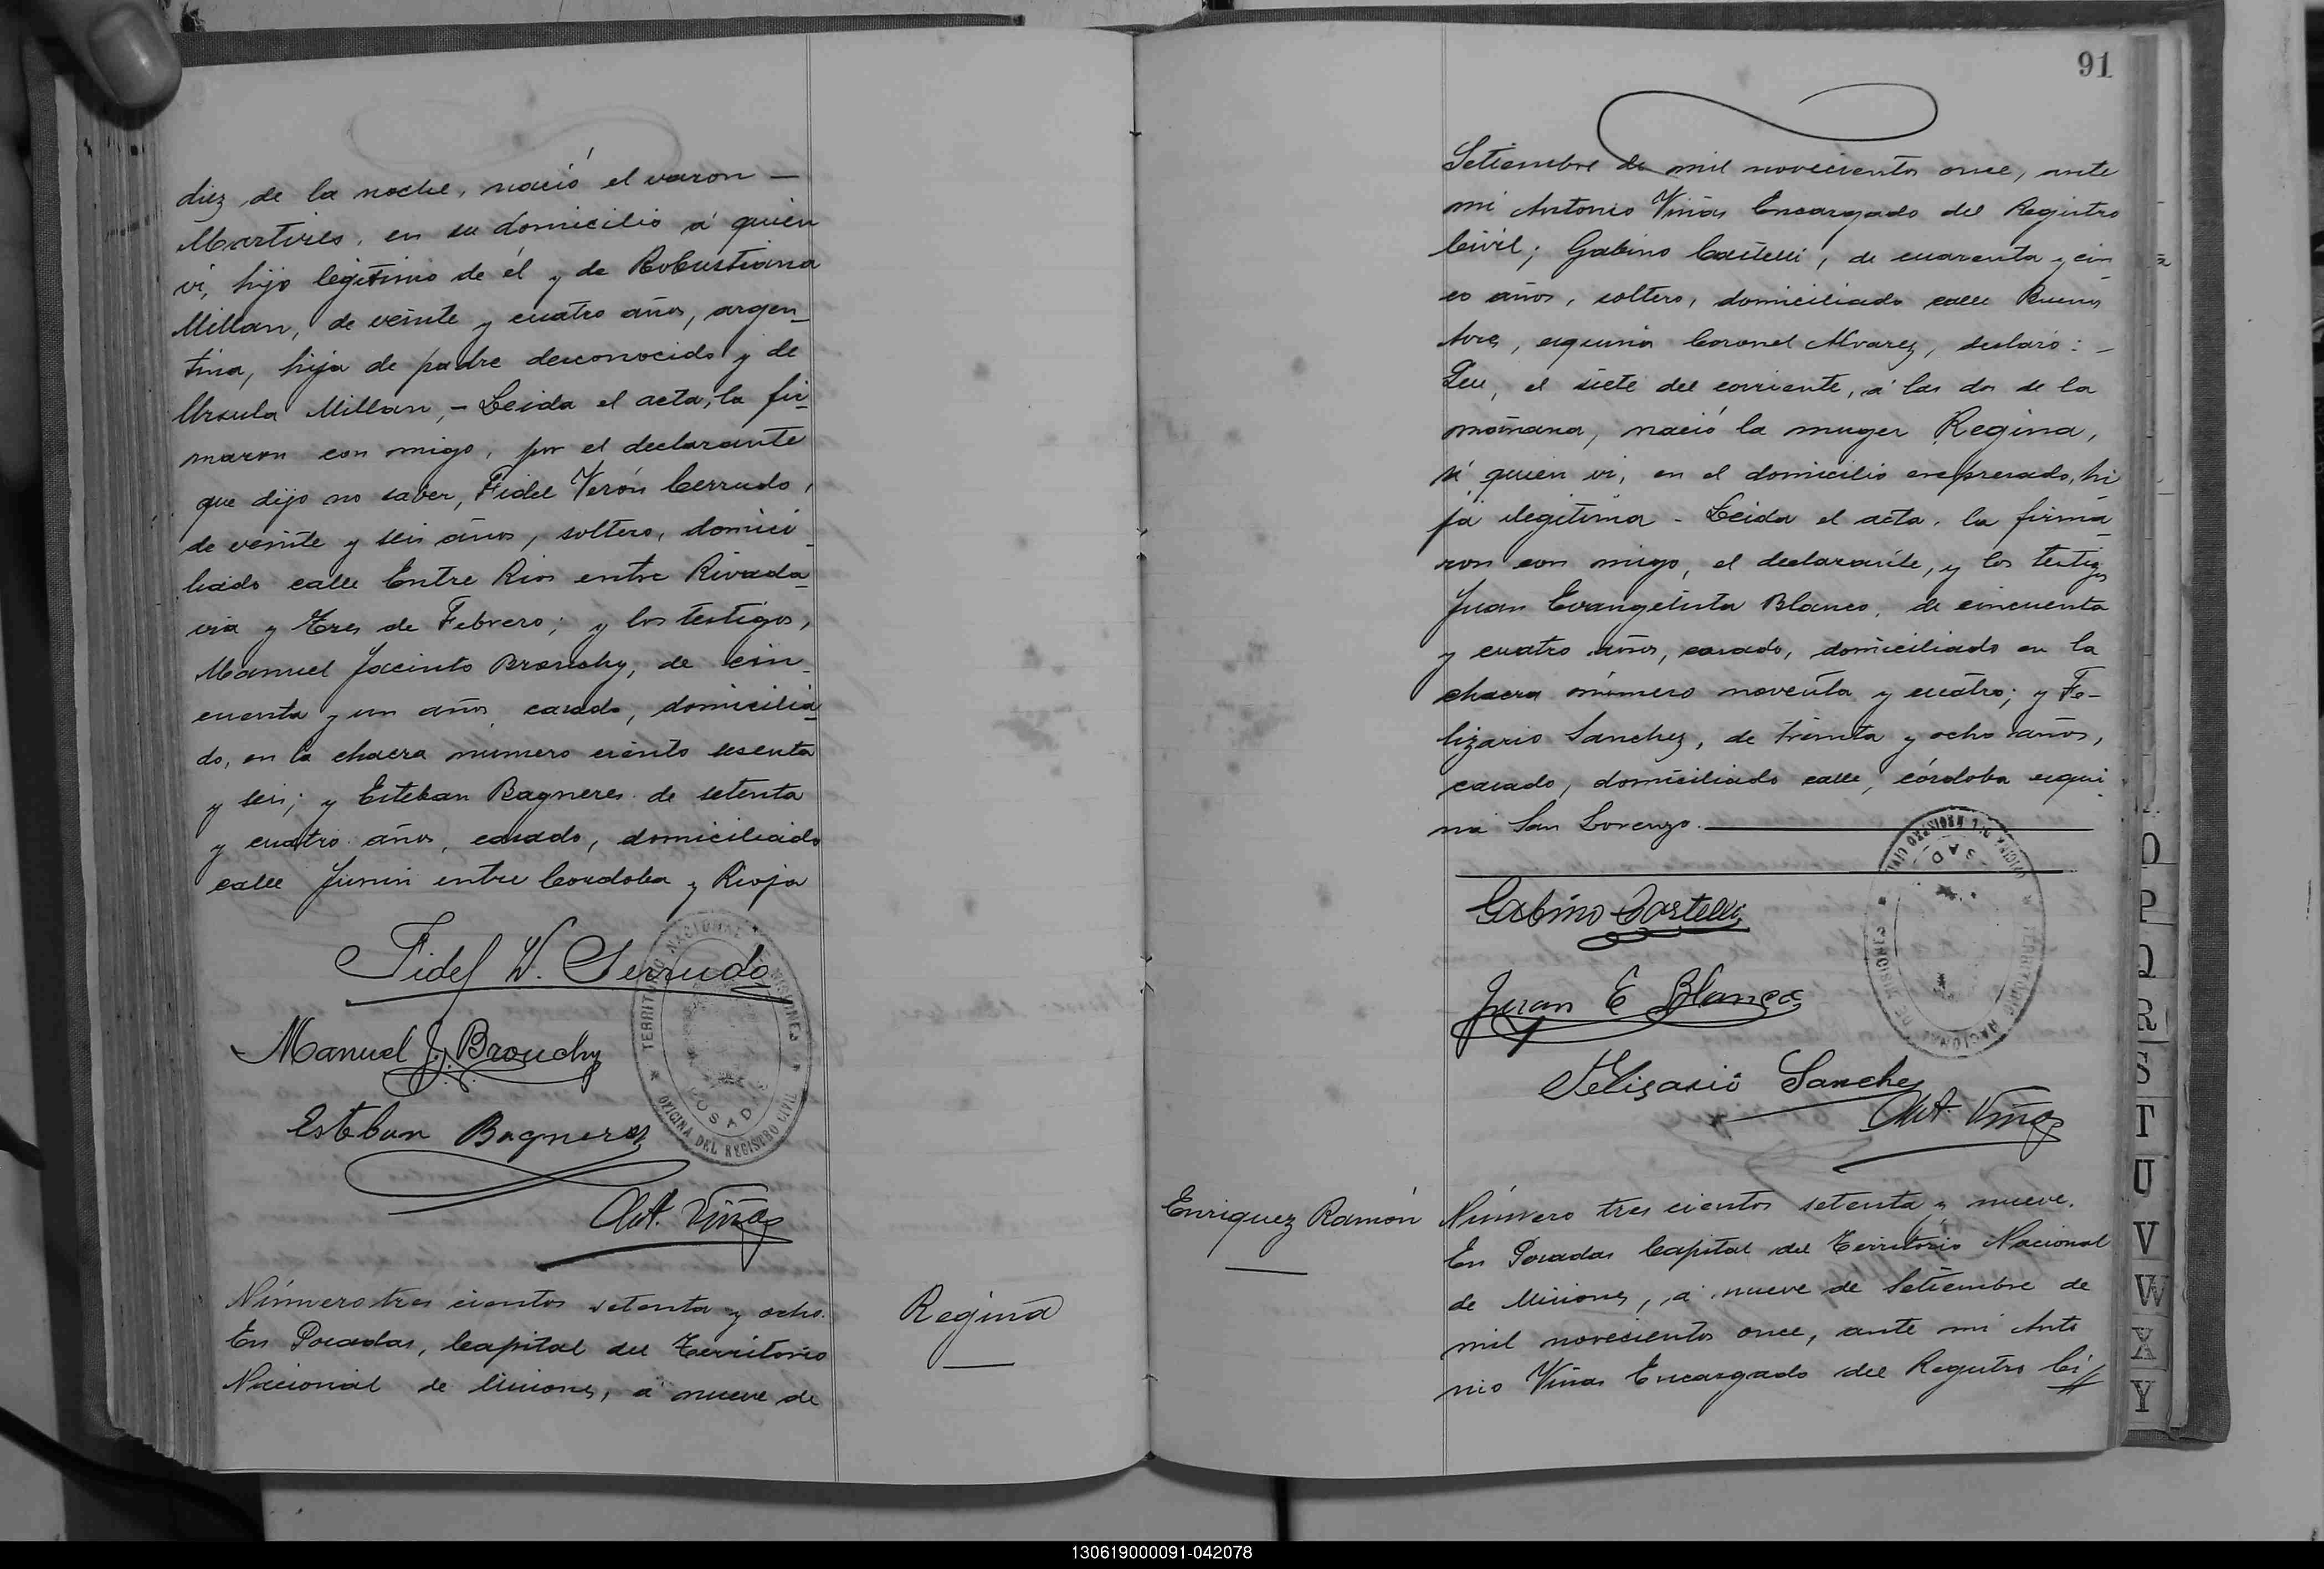 diez de la noche, nació el varon —
Martires, en su domicilio á quien
vi, hijo legitimo de él y de Robustiana
Millan, de veinte y cuatro años, argen_
tina, hija de padre desconocido y de
Ursula Millan, - Leida el acta, la fir_
maron con migo, por el declarante
que dijo no saber, Fidel Verón Cerrudo,
de veinte y seis años, soltero, domici_
liado calle Entre Rios entre Rivada_
via y Tres de Febrero; y los testigos,
Manuel Jacinto Brouchy, de cin_
cuenta y un años casado, domicilia_
do, en la chacra número ciento sesenta
y seis; y Esteban Bagneres de setenta
y cuatro años, casado, domiciliado
calle Junin entre Cordoba y Rioja
Fidel V. Serrudo
Manuel J. Brouchy
Esteban Bagneres
Ant. Viñas
TERRITORIO NACIONAL DE MISIONES
POSADAS
OFICINA DEL REGISTRO CIVIL
Número tres cientos setenta y ocho.
En Posadas, Capital del Territorio
Nacional de Misiones, á nueve de
Regina
91
Setiembre de mil novecientos once, ante
mi Antonio Viñas Encargado del Registro
Civil; Gabino Castelli, de cuarenta y cin_
co años, soltero, domiciliado calle Buenos
Aires, esquina Coronel Alvarez, declaró: -
Que, el siete del corriente, á las dos de la
mañana, nació la muger Regina,
á quien vi, en el domicilio expresado, hi_
ja ilegitima - Leida el acta, la firma_
ron con migo, el declarante, y los testigos
Juan Evangelista Blanco, de cincuenta
y cuatro años, casado, domiciliado en la
chacra número noventa y cuatro; y Fe-
lizario Sanchez, de treinta y ocho años,
casado, domiciliado calle, córdoba esqui_
na San Lorenzo.
Gabino Castelli
Juan E Blanco
Felisario Sanchez
Ant. Viñas
OFICINA DEL REGISTRO CIVIL
POSADAS
TERRITORIO NACIONAL DE MISIONES
Enriquez Ramón
Número tres cientos setenta y nueve.
En Posadas Capital del Territorio Nacional
de Misiones, á nueve de Setiembre de
mil novecientos once, ante mi Anto
nio Viñas Encargado del Registro Ci//
O
P
Q
R
S
T
U
V
W
X
Y
130619000091-042078